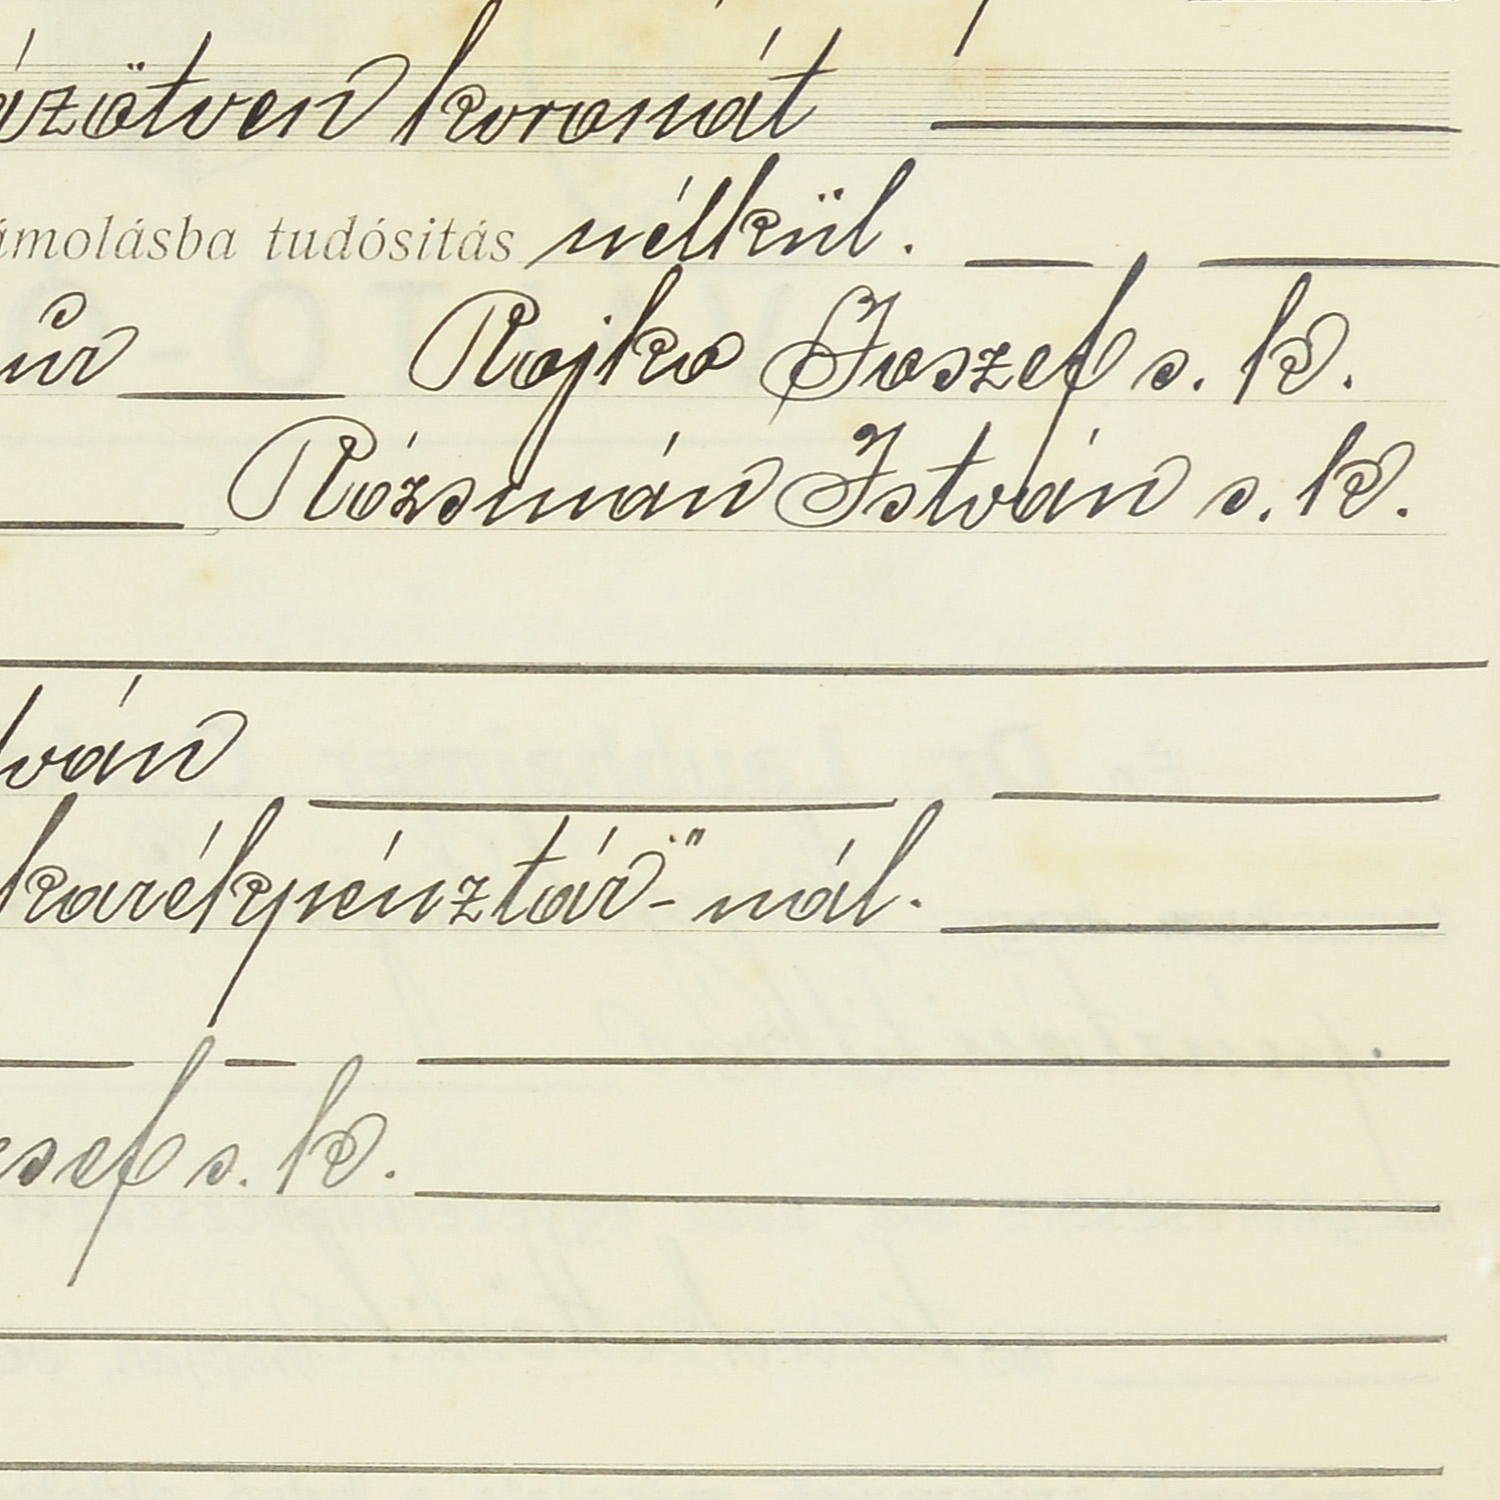 ázötven koronát
ámolásba tudósitás nélkül.
úr Rojko Joszef s. k.
Rózsmán István s. k.
tván
karékpénztár"-nál.
esef s. k.